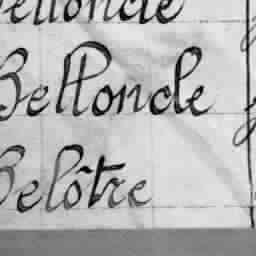 Belloncle
Belloncle
Belôtre